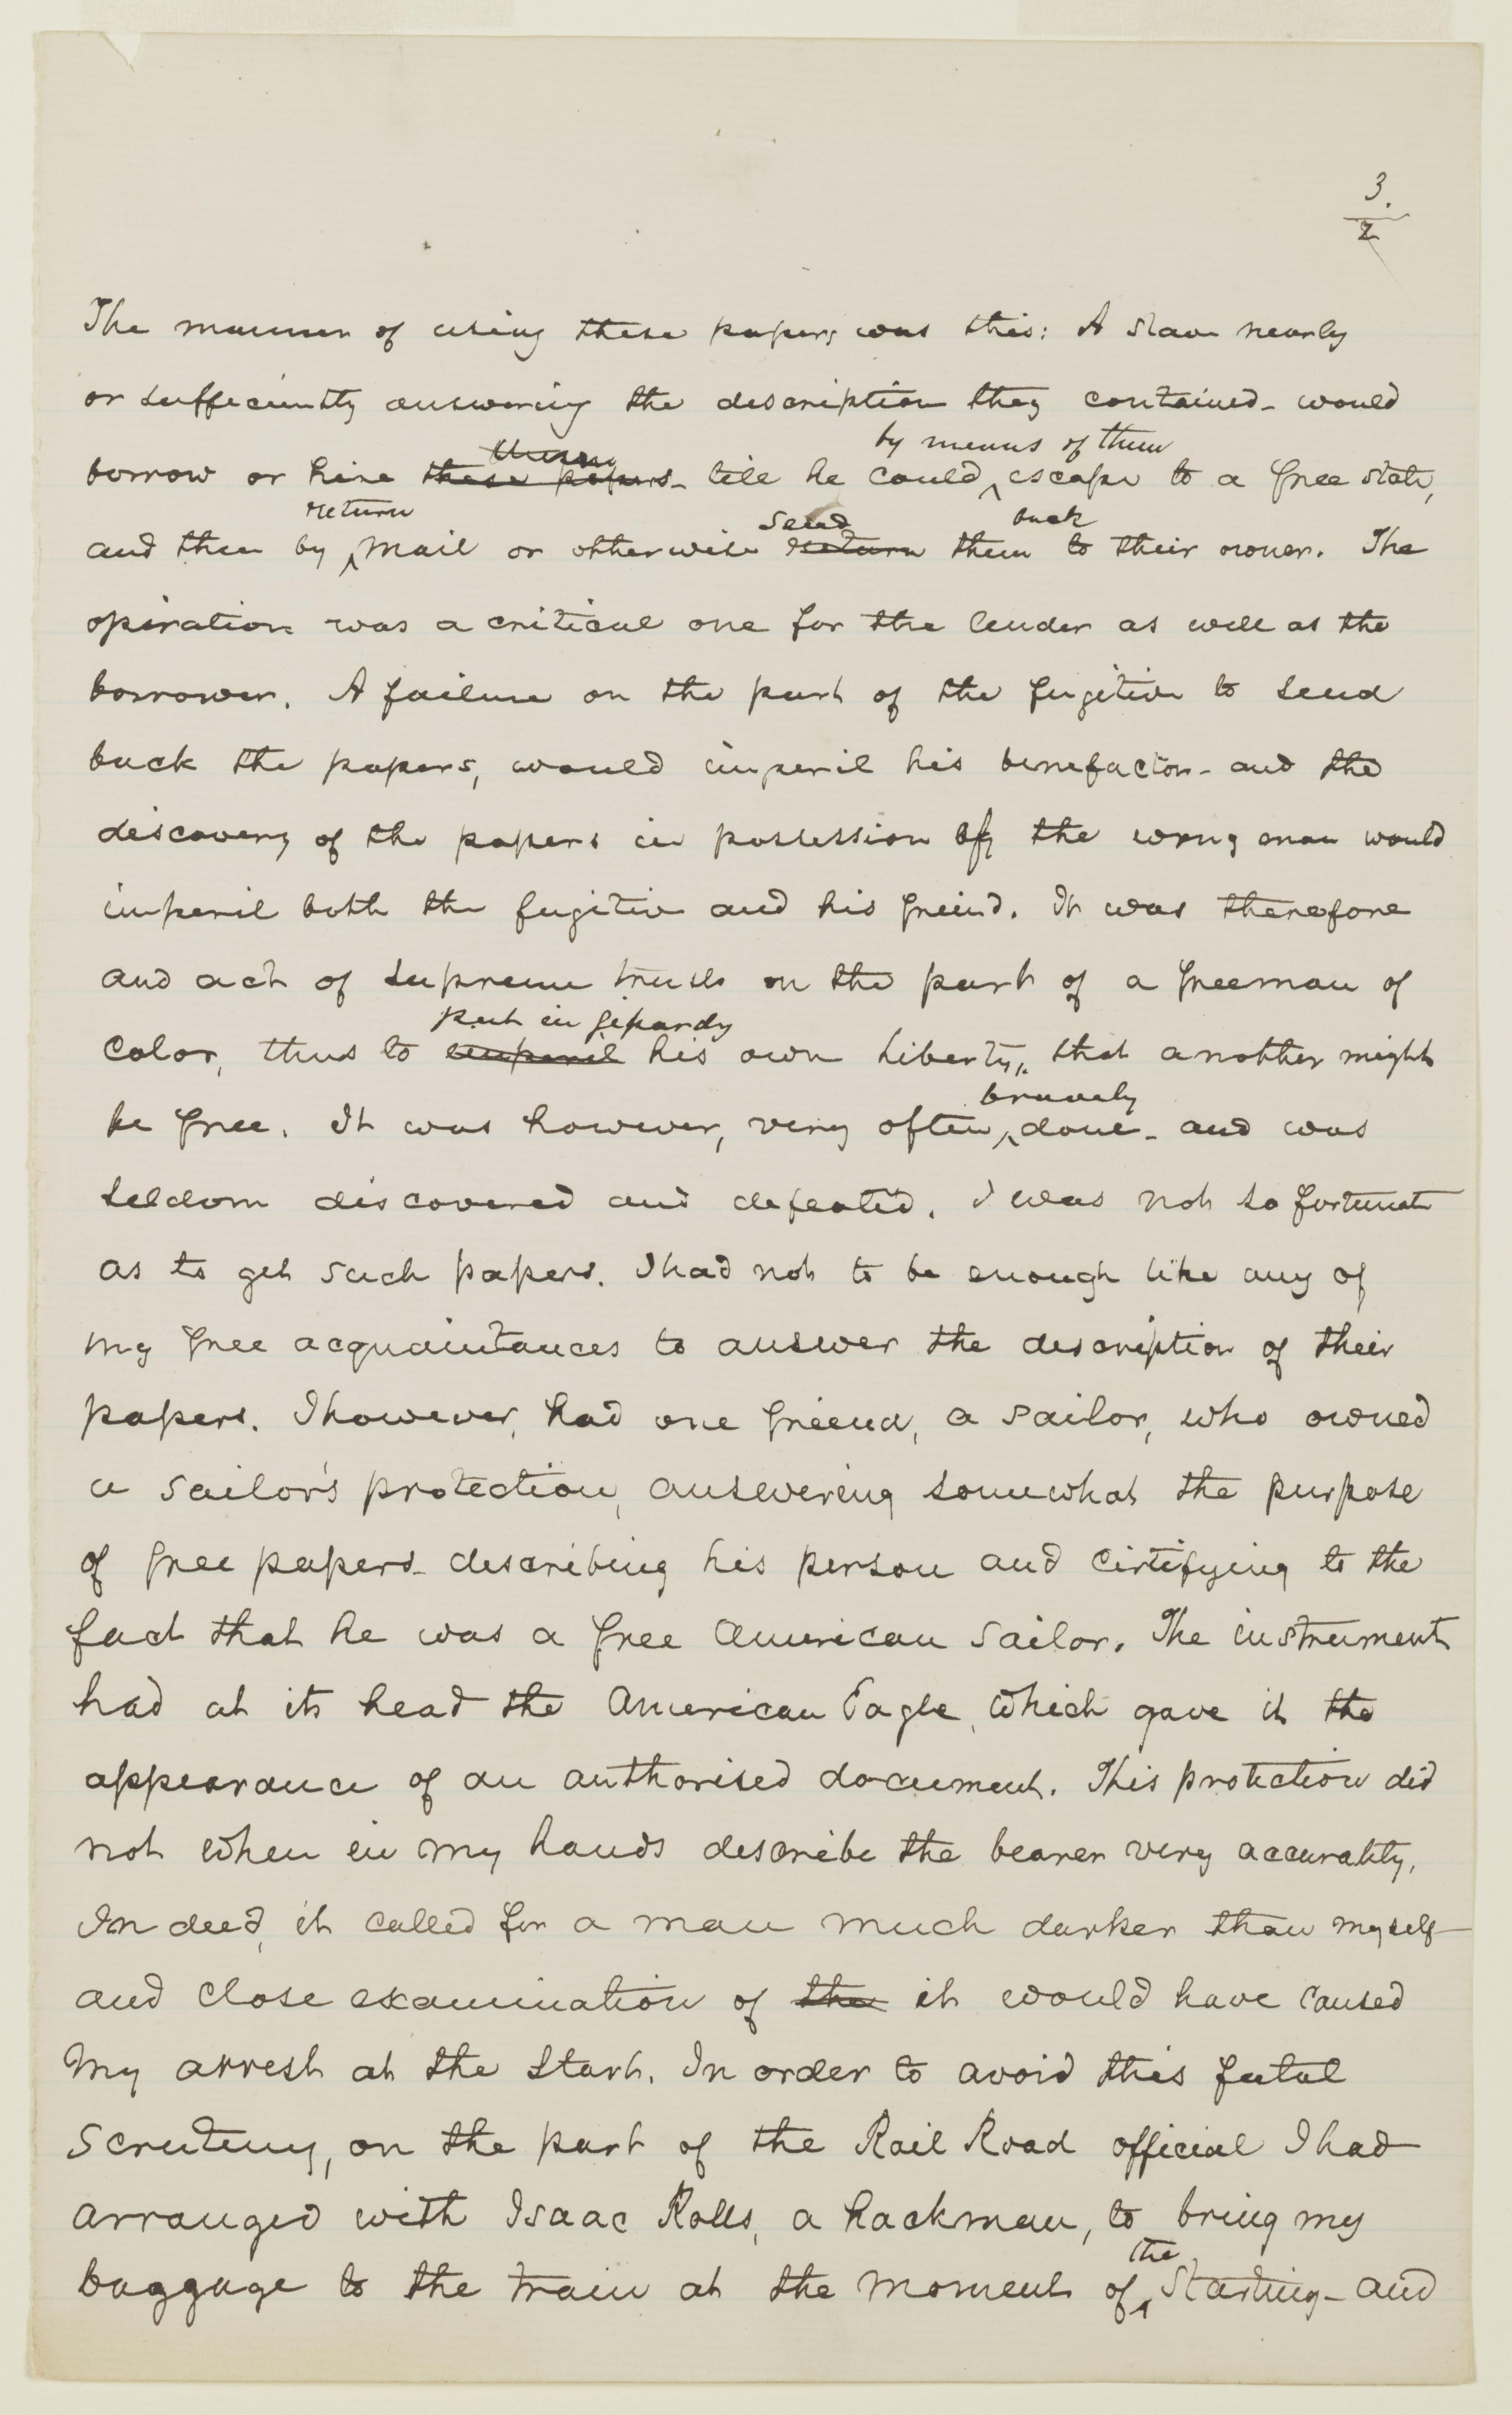 3.
2
The manner of using these papers was this: A slave nearly
or sufficiently answering the description they contained - would
by means of them
borrow or hire these papers - till he could, escape to a free state,
return
send
back
and then by mail or otherwise return them to their owner. The
opiration was a critical one for the lender as well as the
borrower. A failure on the part of the fugitive to send
back the papers, would imperil his benefactor - and the
discovery of the papers in possession of the wrong man would
imperil both the fugitive and his freind. It was therefore
and act of supreme trust on the part of a freeman of
put in jepardy
color, thus to imperil his own liberty, that another might
bravely
be free. It was however, very often, done - and was
seldom discovered and defeated. I was not so fortunate
as to get such papers. I had not to be enough like any of
my free acquaintances to answer the description of their
papers. I however, had one freind, a sailor, who owned
a sailor's protection, answering somewhat the purpose
of free papers - describing his person and certifying to the
fact that he was a free American sailor. The instrument
had at its head the American Eagle, which gave it the
appearance of an authorised document. This protection did
not when in my hands describe the bearer very accurately,
In deed, it called for a man much darker than myself
and close examination of the it would have caused
my arrest at the start. In order to avoid this fatal
scruteny, on the part of the Rail Road official I had
arranged with Isaac Rolls, a hackman, to bring my
the
baggage to the train at the moment of starting - and